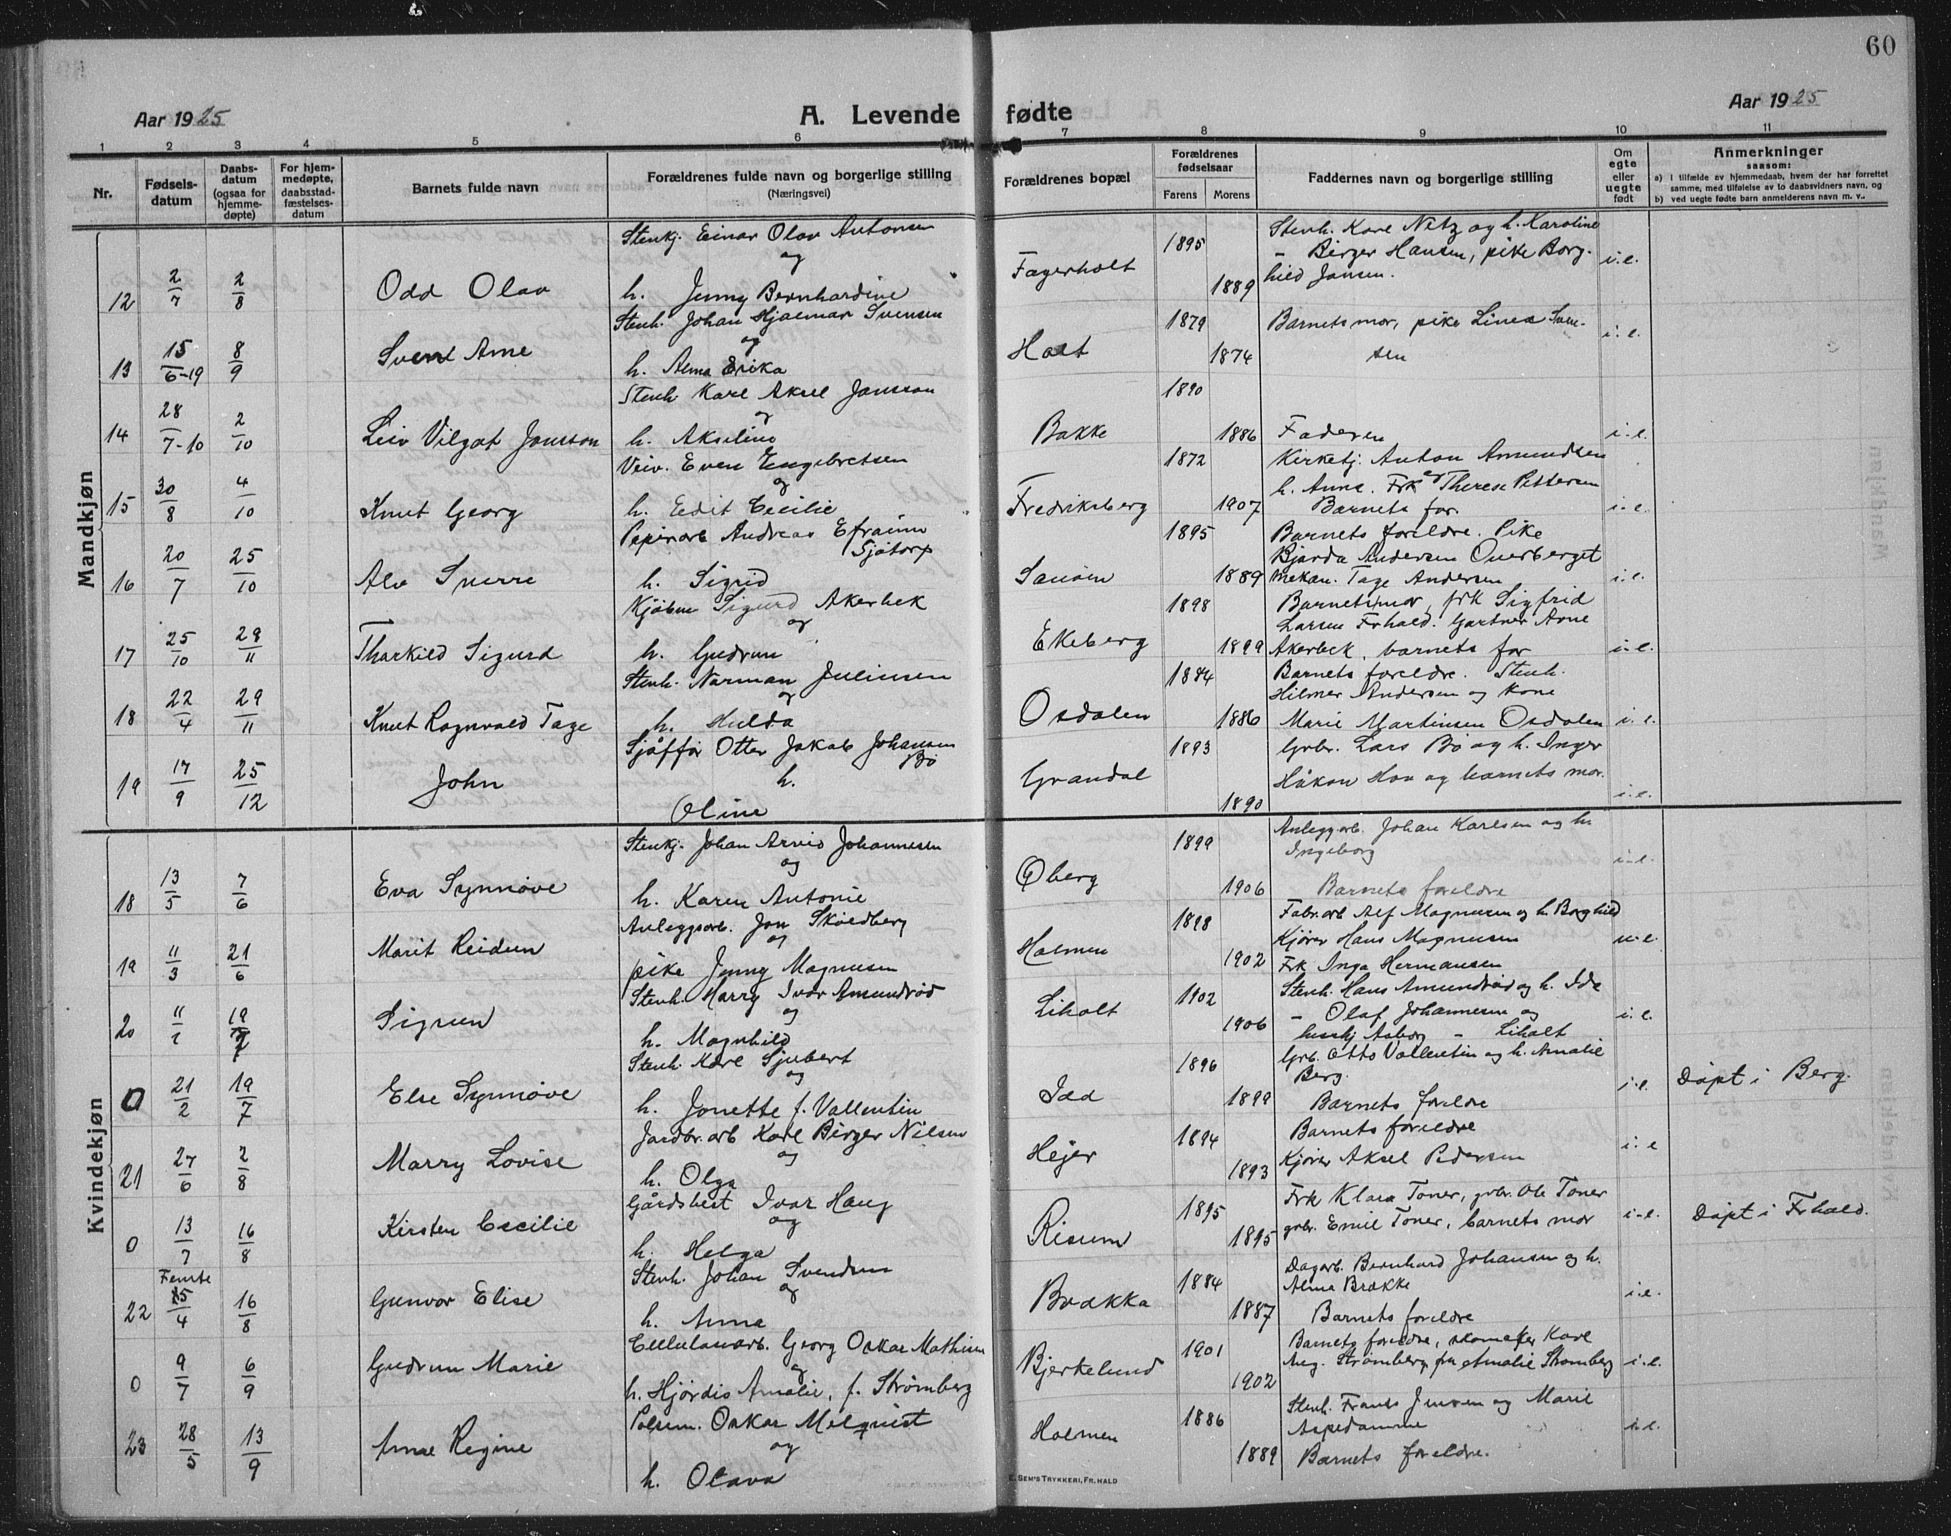 60
Aar 1925
A. Levende fødte
Aar 1925
1 2 3 4 5 6 7 8 9 10 11
Nr.
Fødsels-
datum
Daabs-
datum
(ogsaa for
hjemme-
døpte)
For hjem-
medøpte,
daabsstad-
fæstelses-
datum
Barnets fulde navn
Forældrenes fulde navn og borgerlige stilling
(Næringsvei)
Forældrenes bopæl
Forældrenes
fødselsaar
Farens Morens
Faddernes navn og borgerlige stilling
Om
egte
eller
uegte
født
Anmerkninger
saasom:
a) I tilfælde av hjemmedaab, hvem der har forrettet
samme, med tilføielse av to daabsvidners navn, og
b) ved uegte født barn anmelderens navn m. v..
Mandkjøn
Stenhj. Einar Olav Antonsen 1895 Stenh. Kare Netz og h. Karoline
og Fagerholt - Birger Hansen, pike Borg- i.e.
12 2/7 2/8 Odd Olav h. Jenny Bernhardine 1889 hild Jansen.
Stenh. Johan Hjalmar Svensen 1879 Barnets mor, pike Linea Sven- i.e.
13 15/6-19 8/9 Svend Arne og Holt 1874 sen
h. Alma Erika
Stenh Karl Aksel Jansson 1890
og
14 28/7-10 2/10 Leiv Vilgot Jansson h. Akseline Bakke 1886 Faderen i.e.
Veiv. Even Engebretsen 1872 Kirketj. Anton Amundsen
og h. Anna. Frk Therese Pettersen
15 30/8 4/10 Knut Georg h. Edit Cecilie Fredriksberg 1907 Barnets far i.e.
Papirarb Andreas Efraim 1895 Barnets foreldre. Pike
Sjøtorp Bjarda Andersen Overberget
16 20/7 25/10 Alv Sverre h. Sigrid 1889 mekan. Tage Andersen i.e.
Kjøbm Sigurd Akerbek 1898 Barnets mor, frk Sigfrid
og Larsen Frhald. Gartner Arne
17 25/10 29/11 Tharkild Sigurd h. Gudrun Ekeberg 1899 Akerbek, barnets far i.e.
Stenh. Narman Julinsen 1884 Barnets foreldre. Stenh.
og Hilmer Andersen og kone
18 22/4 29/11 Knut Ragnvald Tage h. Hulda Osdalen 1886 Marie Martinsen Osdalen i.e.
Sjåffør Otter Jakob Johansen 1893 Grbr. Lars Bø og h. Inger
Bø
19 17/9 25/12 John h. Grandal Håkon Hov og barnets mor.
Oline 1890 i.e.
Kvindekjøn
Stenhj. Johan Arvid Johannesen 1899 Anleggarb. Johan Karlsen og h.
og Ingeborg i.e.
18 13/5 7/6 Eva Synnøve h. Karen Antonie Øberg 1906 Barnets foreldre
Anleggsarb. Jon Skoldberg 1898 Fabr.arb Alf Magnusen og h. Borghild
og Kjører Hans Magnusen u.e.
19 11/3 21/6 Marit Reidun pike Jenny Magnusen Holmen 1902 Frk Inga Hermansen
Stenh. Harry Ivar Amundrød 1902 Stenh. Hans Amundrød og h. Ida
og - Olaf Johannesen og i.e.
20 11/1 19/7 Sigrun h. Magnhild Liholt 1906 hushj Asborg - Liholt
Stenh. Karl Sjubert 1896 Grb. Otto Vallentin og h. Amalie
og Berg.
0 21/2 19/7 Else Synnøve h. Jonette f. Vallentin Idd 1899 Barnets foreldre i.e. Døpt i Berg.
Jordbr.arb Karl Birger Nilsen 1894 Barnets foreldre
og
21 27/6 2/8 Marry Lovise h. Olga Hejer 1893 Kjører Aksel Pedersen i.e
Gårdsbest Ivar Haug 1895 Frk Klara Toner, grbr. Ole Toner
og
0 13/7 16/8 Kirsten Cecilie h. Helga Risum 1895 grbr. Emil Toner, barnets mor i.e. Døpt i Frhald.
Stenh. Johan Svendsen 1884 Dagarb. Bernhard Johansen og h.
Femte og Alma Brække i.e.
22 25/4 16/8 Gunvor Elise h. Anna Brække 1887 Barnets foreldre
Cellulosearb. Georg Oskar Mathisen 1901 Barnets foreldre, skomaker Karl
og Aug. Strømberg fru Amalie Strømberg i.e.
0 9/7 6/9 Gudrun Marie h. Hjørdis Amalie, f. Strømberg Bjerkelund 1902
Polsem. Oskar Melqvist 1886 Stenh. Frants Jensen og Marie
og Aspedammen i.e.
23 28/5 13/9 Anne Regine h. Olava Holmen 1889 Barnets foreldre.
E. SEM'S TRYKKERI, FR.HALD